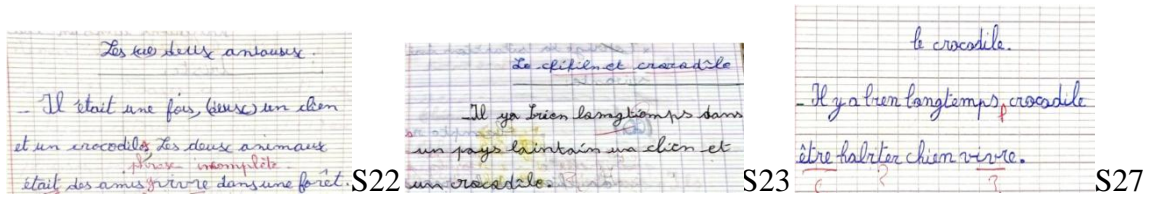 Les deux animaux.
_ Il était une fois, (deux) un chien
et un crocodile Les deux animaux
phrase incomplète.
était des amis vivre dans une forêt.
S22
Le chihen et cracadile
_Il ya bien lomgtiomps dans
un pays laintain un chien et
un crocodile.
S23
le crocodile.
_ Il y a bien longtemps, crocodile
être habiter chien vivre.
?
?
S27